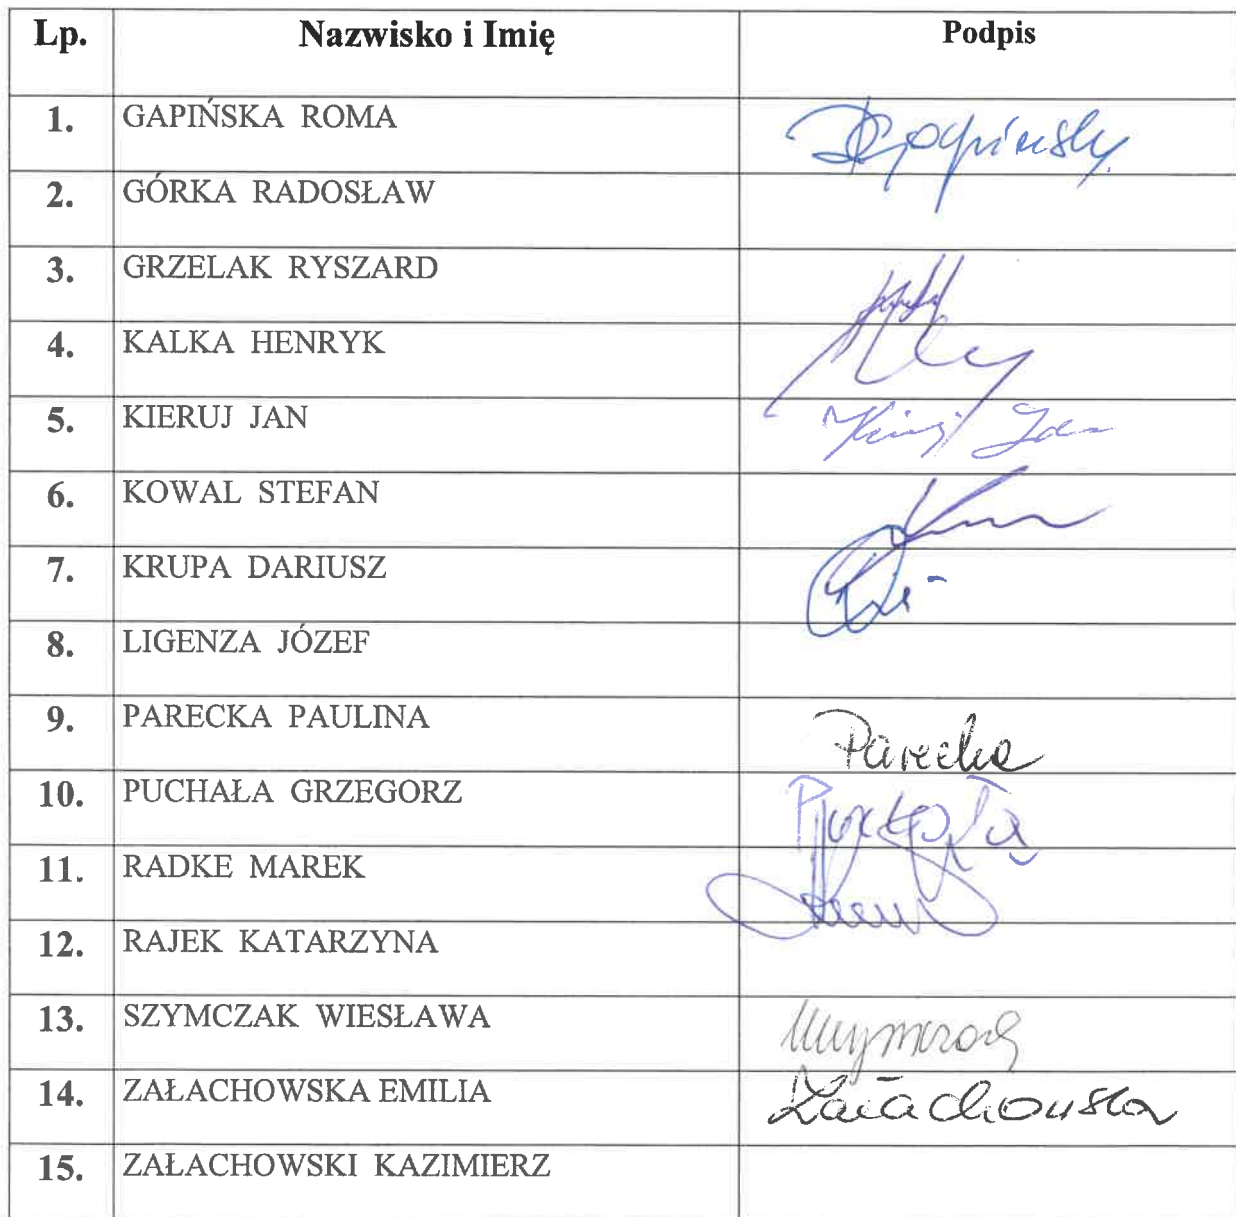 Lp. Nazwisko i Imię Podpis
1. GAPIŃSKA ROMA
2. GÓRKA RADOSŁAW
3. GRZELAK RYSZARD
4. KALKA HENRYK
5. KIERUJ JAN
6. KOWAL STEFAN
7. KRUPA DARIUSZ
8. LIGENZA JÓZEF
9. PARECKA PAULINA Parecka
10. PUCHAŁA GRZEGORZ Puchała
11. RADKE MAREK
12. RAJEK KATARZYNA
13. SZYMCZAK WIESŁAWA
14. ZAŁACHOWSKA EMILIA Załachowska
15. ZAŁACHOWSKI KAZIMIERZ